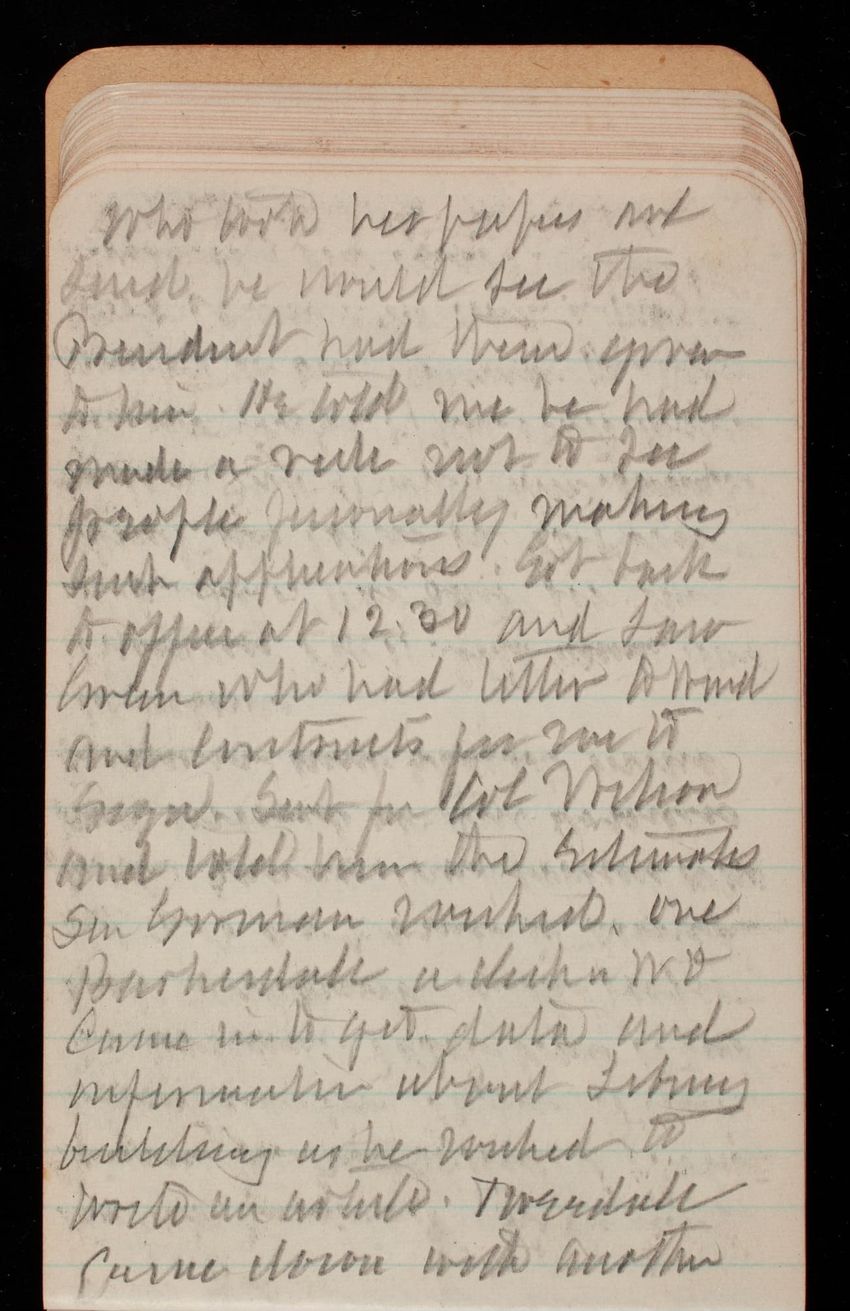 who took his papers and
said he would see the
President had them given
to him. He told me he had
made a rule not to see
people personally making
such applications. Got back
to office at 12.30 and saw
Green who had letter to
and contracts for me to
sign. Sent for Col Wilson
and told him the Estimates
Sen Gorman wished. one
a clerk in W.D
Came in to get data and
information about Library
building as he wished to
write an article. Tweedale
came down with another